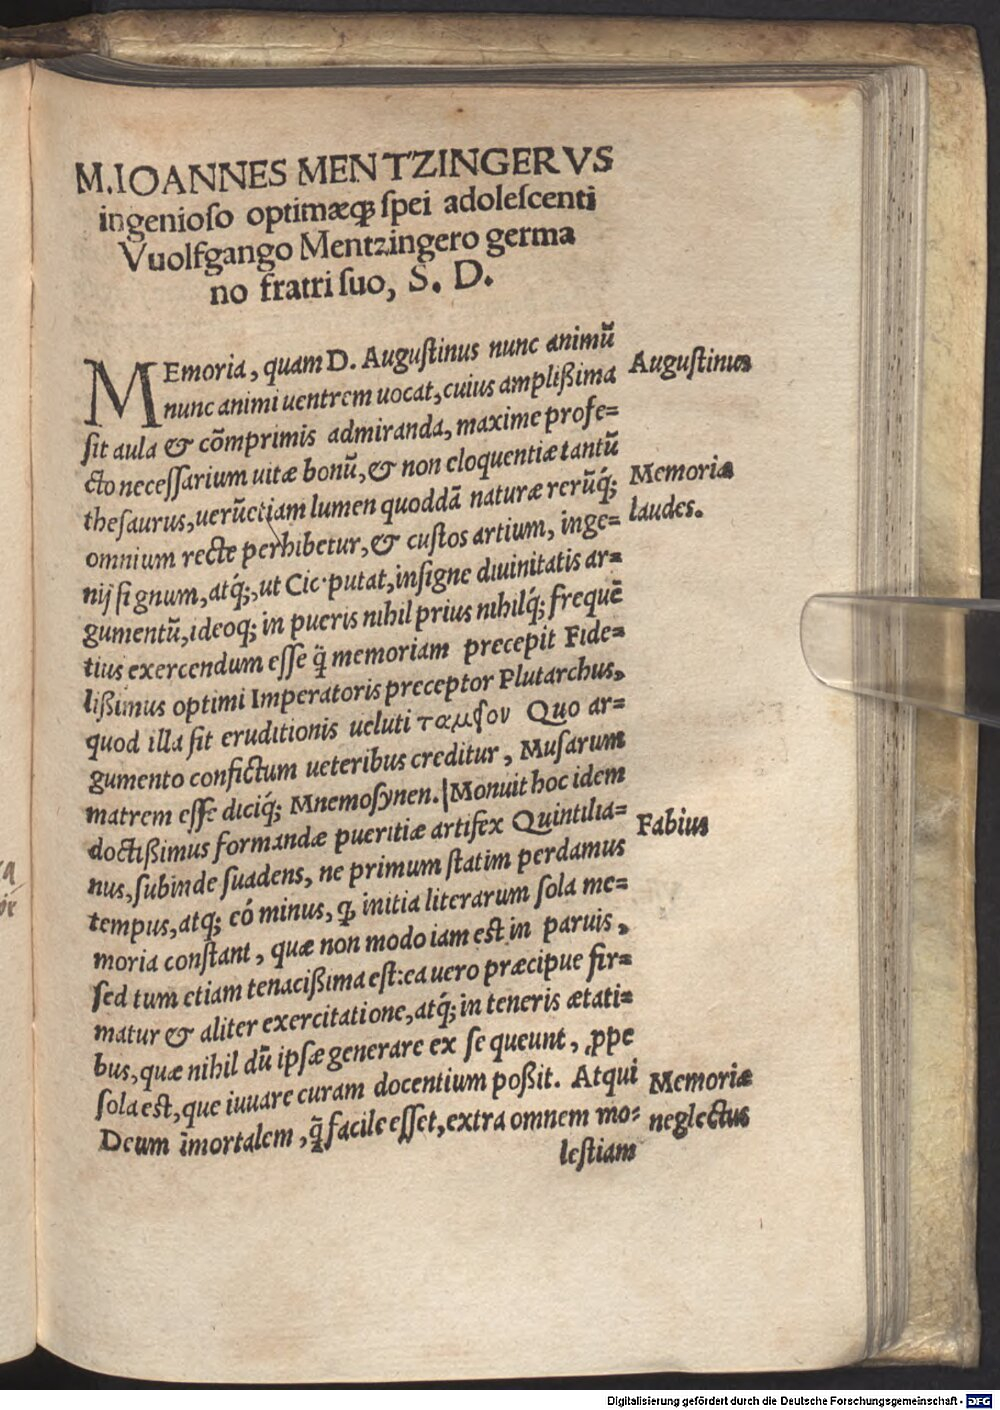 M. IOANNES MENTZINGERVS
ingenioſo optimæq; ſpei adoleſcenti
Vuolfgango Mentzingero germa
no fratri ſuo, S. D.
MEmoria, quam D. Auguſtinus nunc animũ
nunc animi uentrem uocat, cuius ampliſſima
ſit aula & cõmprimis admiranda, maxime profe=
cto neceſſarium uitæ bonũ, & non eloquentiæ tantũ
theſaurus, uerũetiam lumen quoddã naturæ rerũq́;
omnium recte perhibetur, & cuſtos artium, inge=
nij ſignum, atq́;, ut Cic. putat, inſigne diuinitatis ar=
gumentũ, ideoq; in pueris nihil prius nihilq́; frequẽ
tius exercendum eſſe q̃ memoriam precepit Fide=
liſſimus optimi Imperatoris preceptor Plutarchus,
quod illa ſit eruditionis ueluti ταμεῖον Quo ar=
gumento confictum ueteribus creditur, Muſarum
matrem eſſe diciq́; Mnemoſynen. Monuit hoc idem
doctiſſimus formandæ pueritiæ artifex Quintilia=
nus, ſubinde ſuadens, ne primum ſtatim perdamus
tempus, atq; eó minus, ꝙ initia literarum ſola me=
moria conſtant, quæ non modo iam eſt in paruis,
ſed tum etiam tenaciſſima eſt: ea uero præcipue fir=
matur & aliter exercitatione, atq́; in teneris ætati=
bus, quæ nihil dũ ipſæ generare ex ſe queunt, ꝓpe
ſola eſt, que iuuare curam docentium poſſit. Atqui
Deum īmortalem, q̃ facile eſſet, extra omnem mo=
leſtiam
Auguſtinus
Memoriæ
laudes.
Fabius
Memoriæ
neglectus
Digitalisierung gefördert durch die Deutsche Forschungsgemeinschaft - DFG